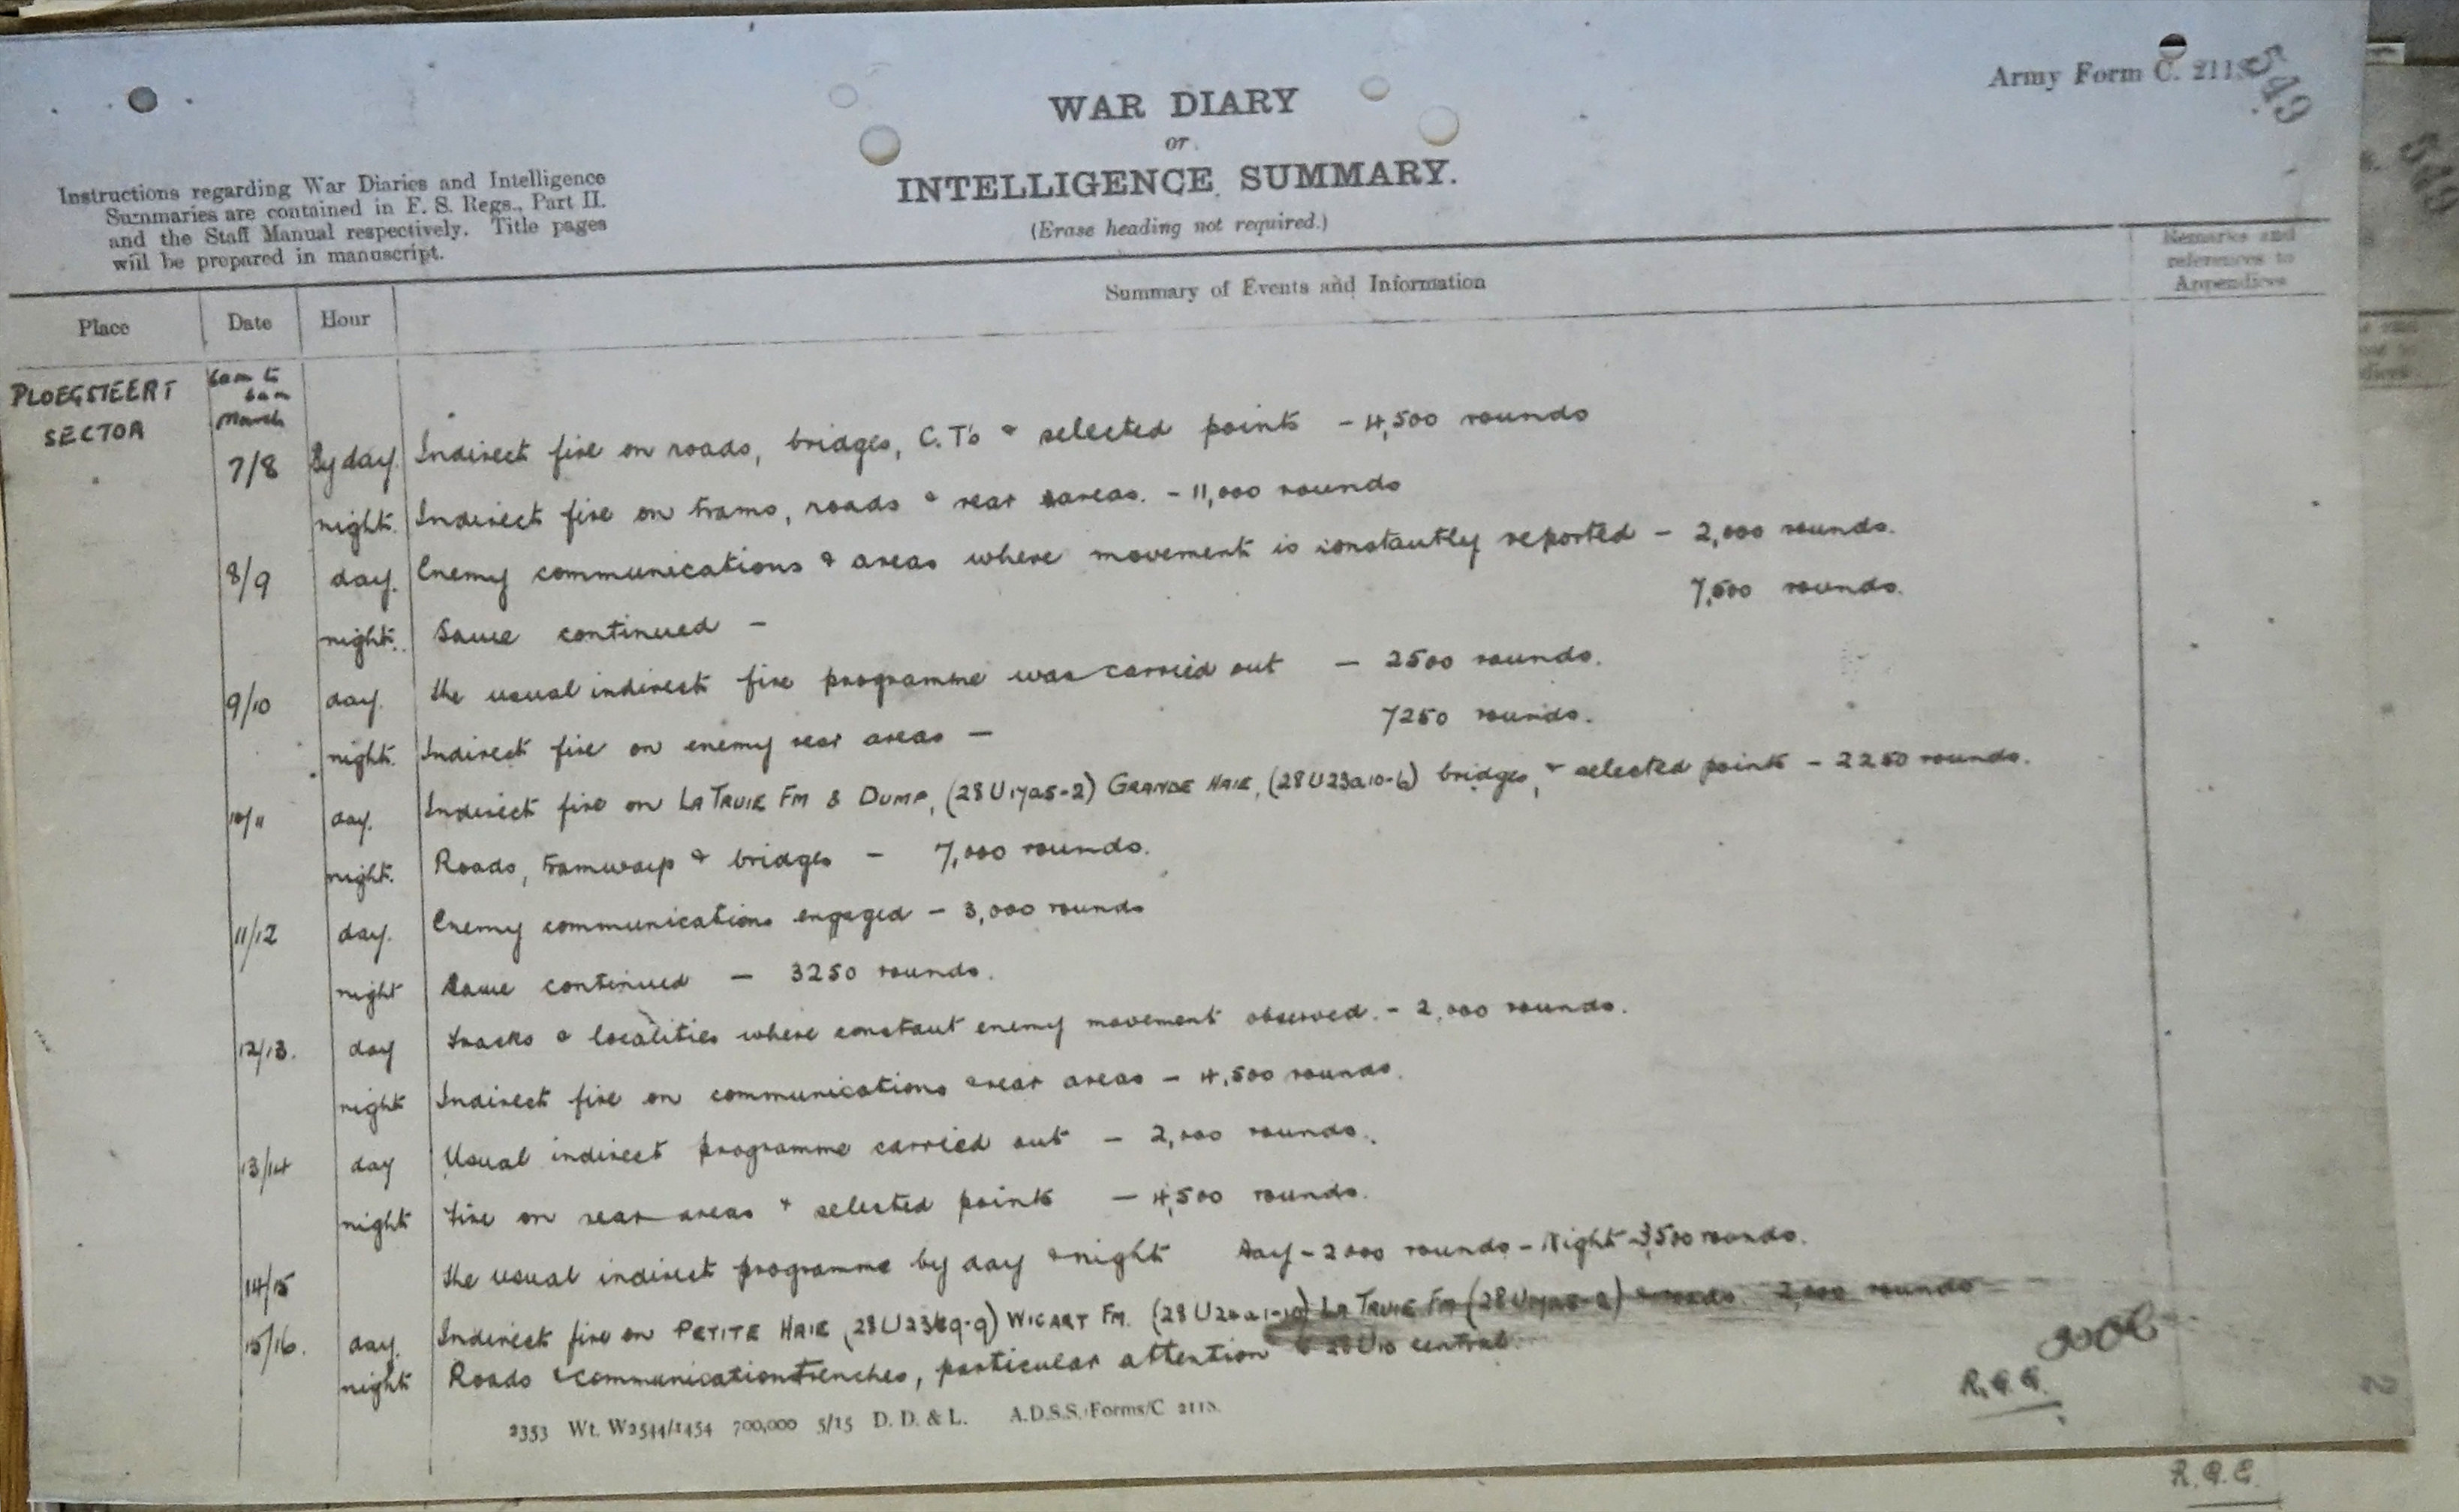 Army Form C. 211
549
WAR DIARY
or
INTELLIGENCE SUMMARY.
(Erase heading not required.)
Instructions regarding War Diaries and Intelligence
Summaries are contained in F. S. Regs., Part II.
and the Staff Manual respectively. Title pages
will be prepared in manuscript.
Remarks and
references to
Appendices
Summary of Events and Information
Place Date Hour
PLOEGSTEERT SECTOR
6am to
6am
March
7/8 By day. Indirect fire on roads, bridges, C.T's & selected points - 4,500 rounds
night. Indirect fire on trams, roads & rear areas. - 11,000 rounds
8/9 day. Enemy communications & areas where movement is constantly reported - 2,000 rounds.
night. Same continued - 7,500 rounds.
9/10 day. The usual indirect fire programme was carried out - 2500 rounds.
night. Indirect fire on enemy rear areas - 7250 rounds.
10/11 day. Indirect fire on LA TRUIE FM & DUMP, (28U17a5-2) GRANDE HAIE, (28U23a10-6) bridges, & selected points - 2250 rounds.
night. Roads, tramways & bridges - 7,000 rounds.
11/12 day. Enemy communications engaged - 3,000 rounds
night Same continued - 3250 rounds.
12/13. day Tracks & localities where constant enemy movement observed. - 2,000 rounds.
night Indirect fire on communications & rear areas - 4,500 rounds.
13/14 day Usual indirect programme carried out - 2,000 rounds.
night Fire on rear areas & selected points - 4,500 rounds.
14/15 The usual indirect programme by day & night Day - 2000 rounds - Night - 3,500 rounds.
15/16. day. Indirect fire on PETITE HAIE (28U23b9-9) WICART FM. LA TRUIE FM (28U17a5-2) & roads. 2,000 rounds
night Roads & communication trenches, particular attention to 28U10 central.
2353 Wt. W2544/1454 700,000 5/15 D. D. & L. A.D.S.S./Forms/C 2118.